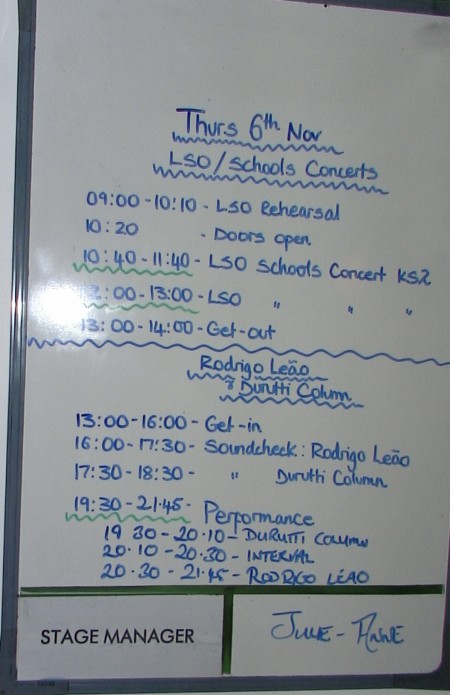 Thurs 6th Nov
LSO/Schools Concerts
09:00-10:10 - LSO Rehearsal
10:20 - Doors open
10:40-11:40 - LSO Schools Concert KS2
12:00-13:00 - LSO " " "
13:00-14:00 - Get-out
Rodrigo Leão
& Durutti Column
13:00-16:00 - Get-in
16:00-17:30 - Soundcheck: Rodrigo Leão
17:30-18:30 - " Durutti Column
19:30-21.45 - Performance
19 30-20.10 - DURUTTI COLUMN
20.10-20.30 - INTERVAL
20.30-21.45 - RODRIGO LEÃO
STAGE MANAGER
JULIE-ANNE